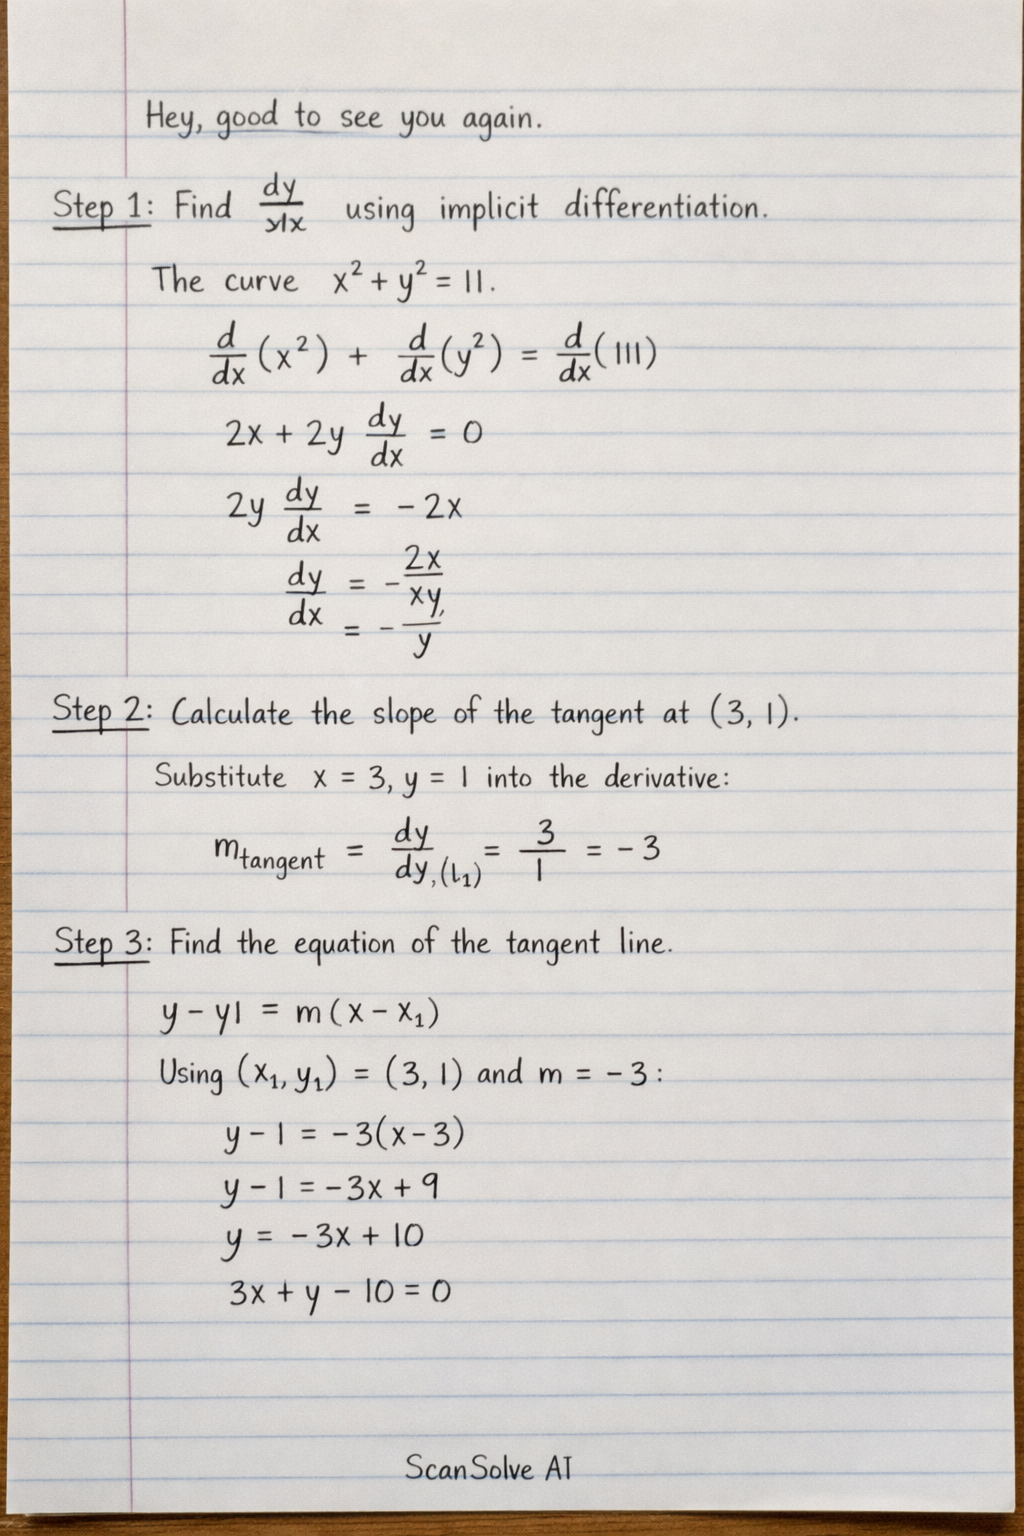 Hey, good to see you again.
Step 1: Find dy/ylx using implicit differentiation.
The curve x² + y² = 11.
d/dx (x²) + d/dx (y²) = d/dx (111)
2x + 2y dy/dx = 0
2y dy/dx = - 2x
dy/dx = - 2x/xy,
= - /y
Step 2: Calculate the slope of the tangent at (3, 1).
Substitute x = 3, y = 1 into the derivative:
m_tangent = dy/dy,(l₁) = 3/1 = - 3
Step 3: Find the equation of the tangent line.
y - y1 = m (x - x₁)
Using (x₁, y₁) = (3, 1) and m = - 3 :
y - 1 = -3(x - 3)
y - 1 = -3x + 9
y = - 3x + 10
3x + y - 10 = 0
ScanSolve AI